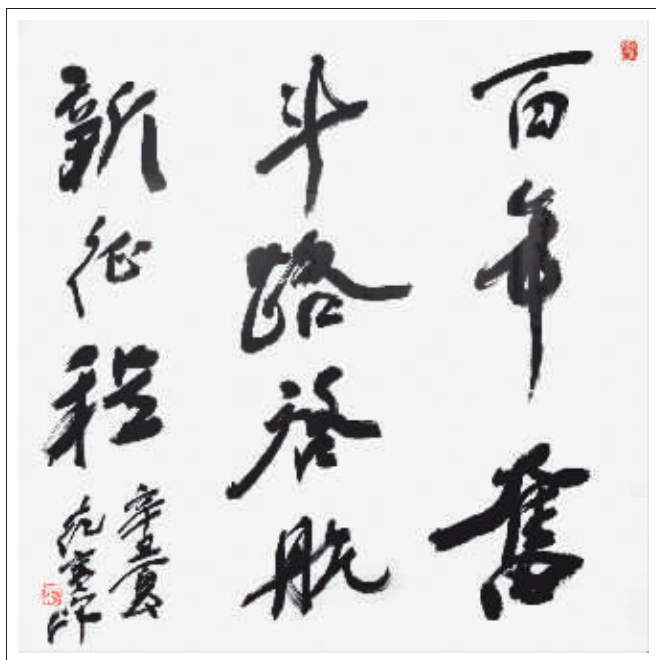 百年奮
斗路啓航
新征程
辛丑夏